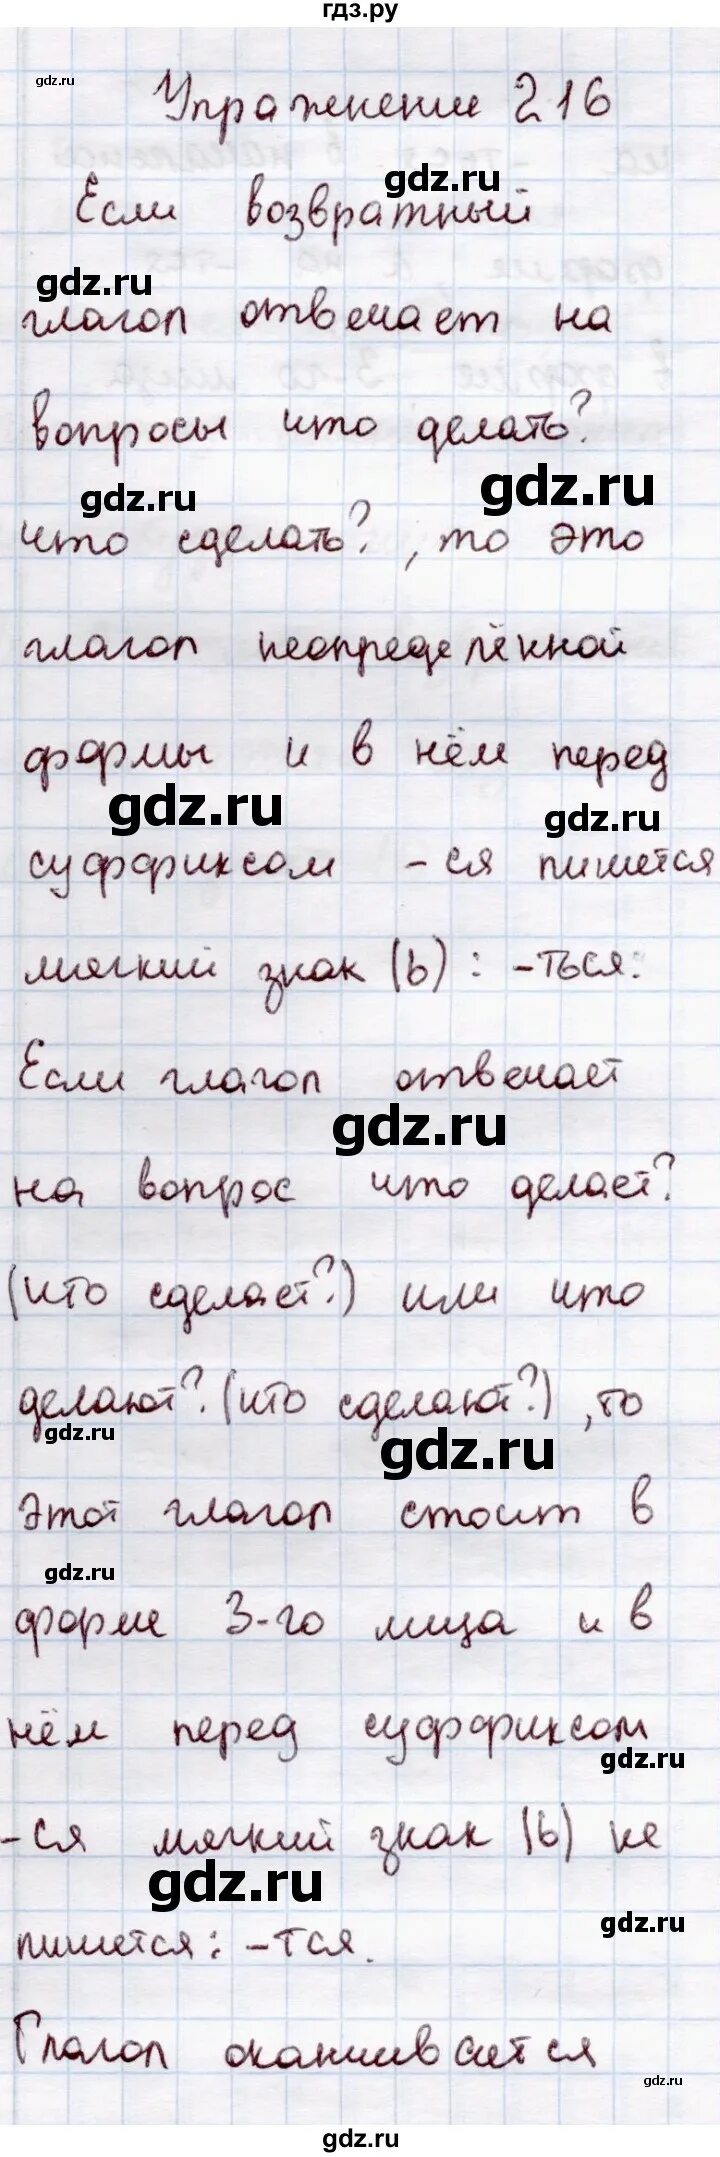 гдз.ру
gdz.ru
Упражнение 216
gdz.ru
Если возвратный
gdz.ru
глагол отвечает на
вопросы что делать?
gdz.ru gdz.ru
что сделать?, то это
глагол неопределённой
формы и в нём перед
gdz.ru gdz.ru
суффиксом -ся пишется
мягкий знак (ь): -ться.
Если глагол отвечает
gdz.ru
на вопрос что делает?
(что сделает?) или что
делают? (что сделают?), то
gdz.ru gdz.ru
этот глагол стоит в
gdz.ru
форме 3-го лица и в
нём перед суффиксом
gdz.ru
-ся мягкий знак (ь) не
gdz.ru
gdz.ru
пишется: -тся.
Глагол оканчивается
gdz.ru
gdz.ru